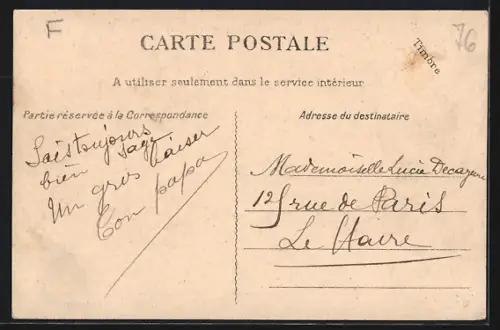 F
76
CARTE POSTALE
Timbre
A utiliser seulement dans le service intérieur
Partie réservée à la Correspondance
Adresse du destinataire
Sois toujours
bien sage
Un gros baiser
Ton papa
Mademoiselle Lucie
125 rue de Paris
Le Havre